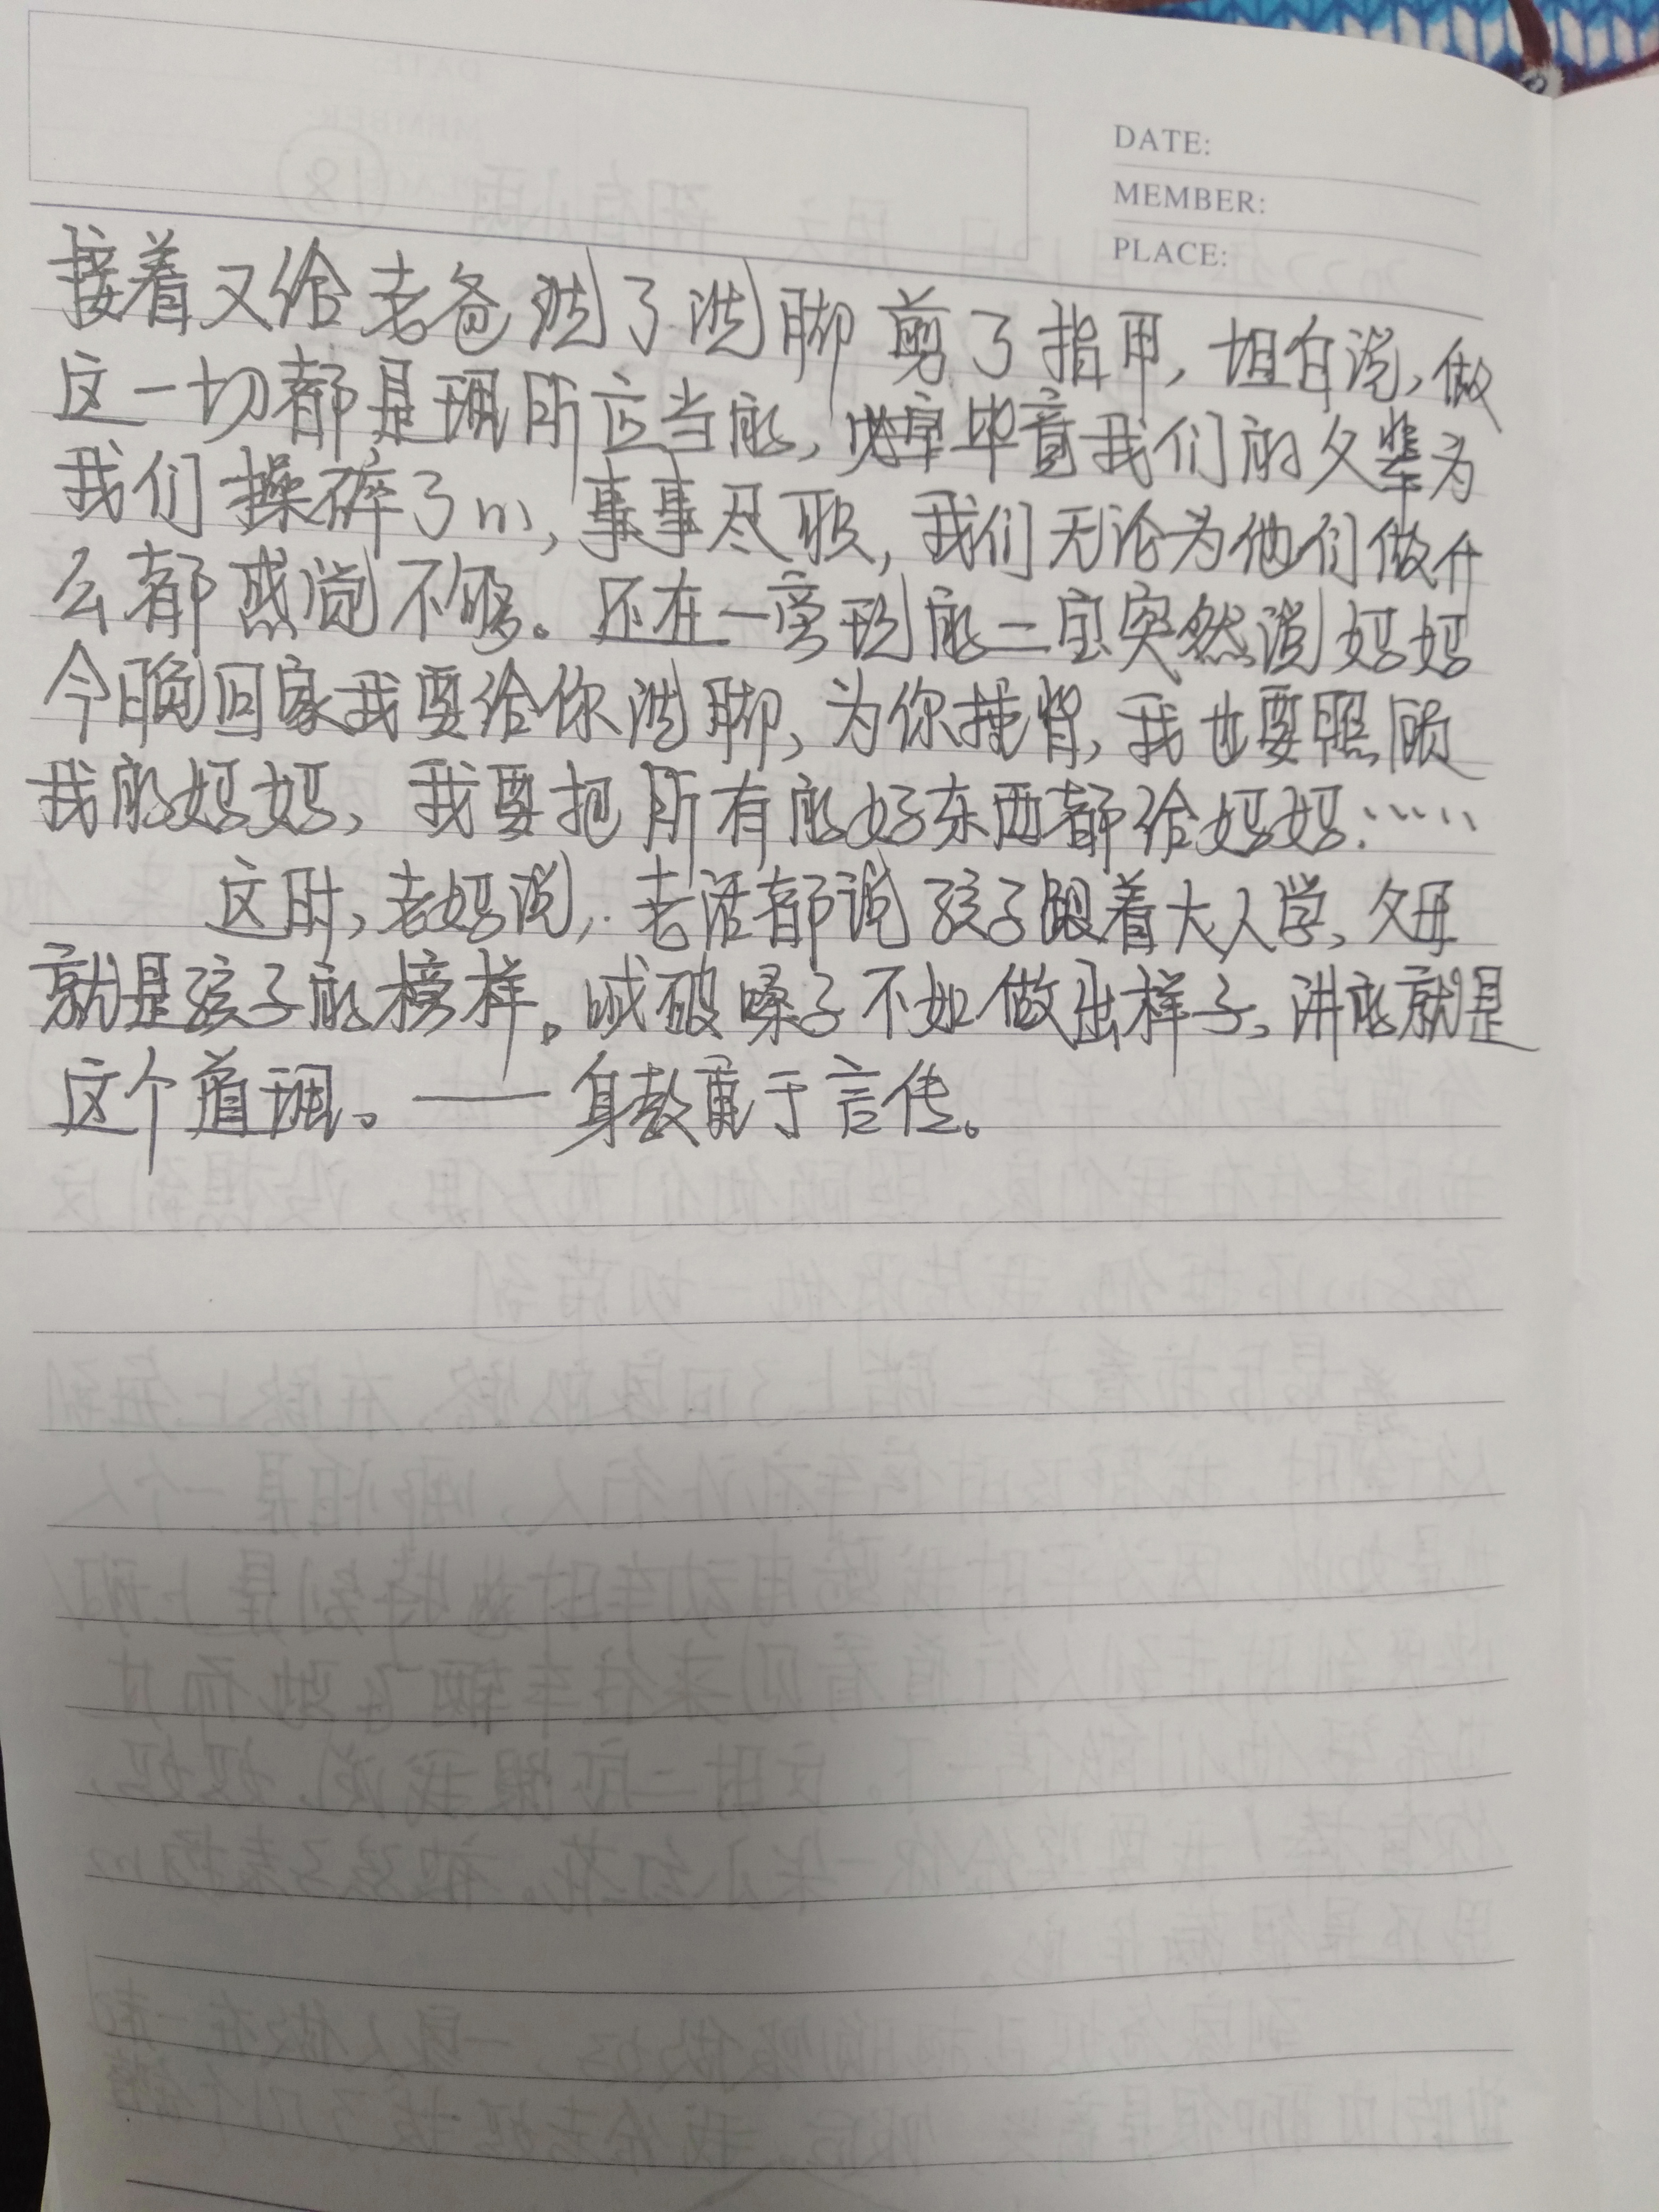 DATE:
MEMBER:
PLACE:
接着又给老爸洗了洗脚剪了指甲,坦白说,做
这一切都是理所应当的,毕竟我们的父辈为
我们操碎了心,事事尽职,我们无论为他们做什
么都感觉不够。还在一旁玩的二宝突然说妈妈
今晚回家我要给你洗脚,为你捶背,我也要照顾
我的妈妈,我要把所有的好东西都给妈妈……
这时,老妈说,老话都说孩子跟着大人学,父母
就是孩子的榜样。喊破嗓子不如做出样子,讲的就是
这个道理。——身教重于言传。